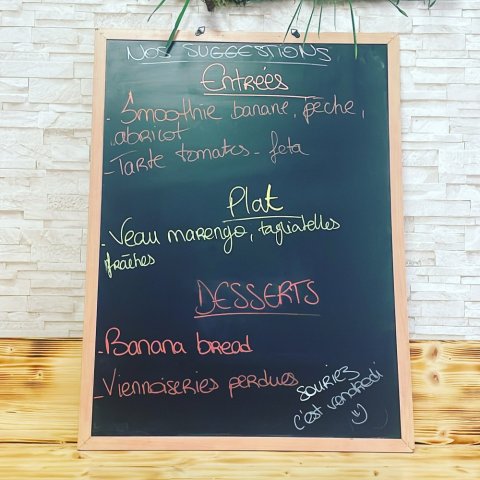 NOS SUGGESTIONS
Entrées
- Smoothie banane, pêche,
abricot
- Tarte tomates - feta
Plat
- Veau marengo, tagliatelles
fraîches
DESSERTS
- Banana bread
- Viennoiseries perdues
SOURIEZ
c'est vendredi
=)